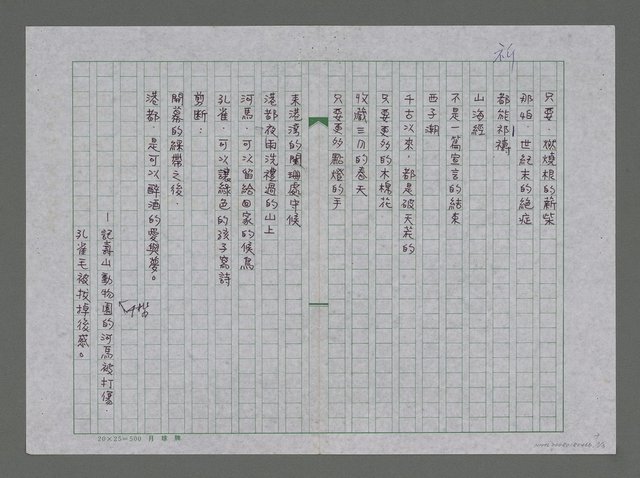 祈
只要，燃燒根的薪柴
那怕，世紀末的絕症
都能祁禱
山海經
不是一篇宣言的結束
西子灣
千古以來，都是破天荒的
只要更多的木棉花
收藏三月的春天
只要更多點燈的手
來港灣的闌珊處守候
港都夜雨洗禮過的山上
河馬，可以留給回家的候鳥
孔雀，可以讓綠色的孩子寫詩
剪斷：
開幕的綵帶之後，
港都，是可以醉酒的愛與夢。
—記壽山動物園的河馬被打傷，
孔雀毛被拔掉後感。
20×25=500 月球牌